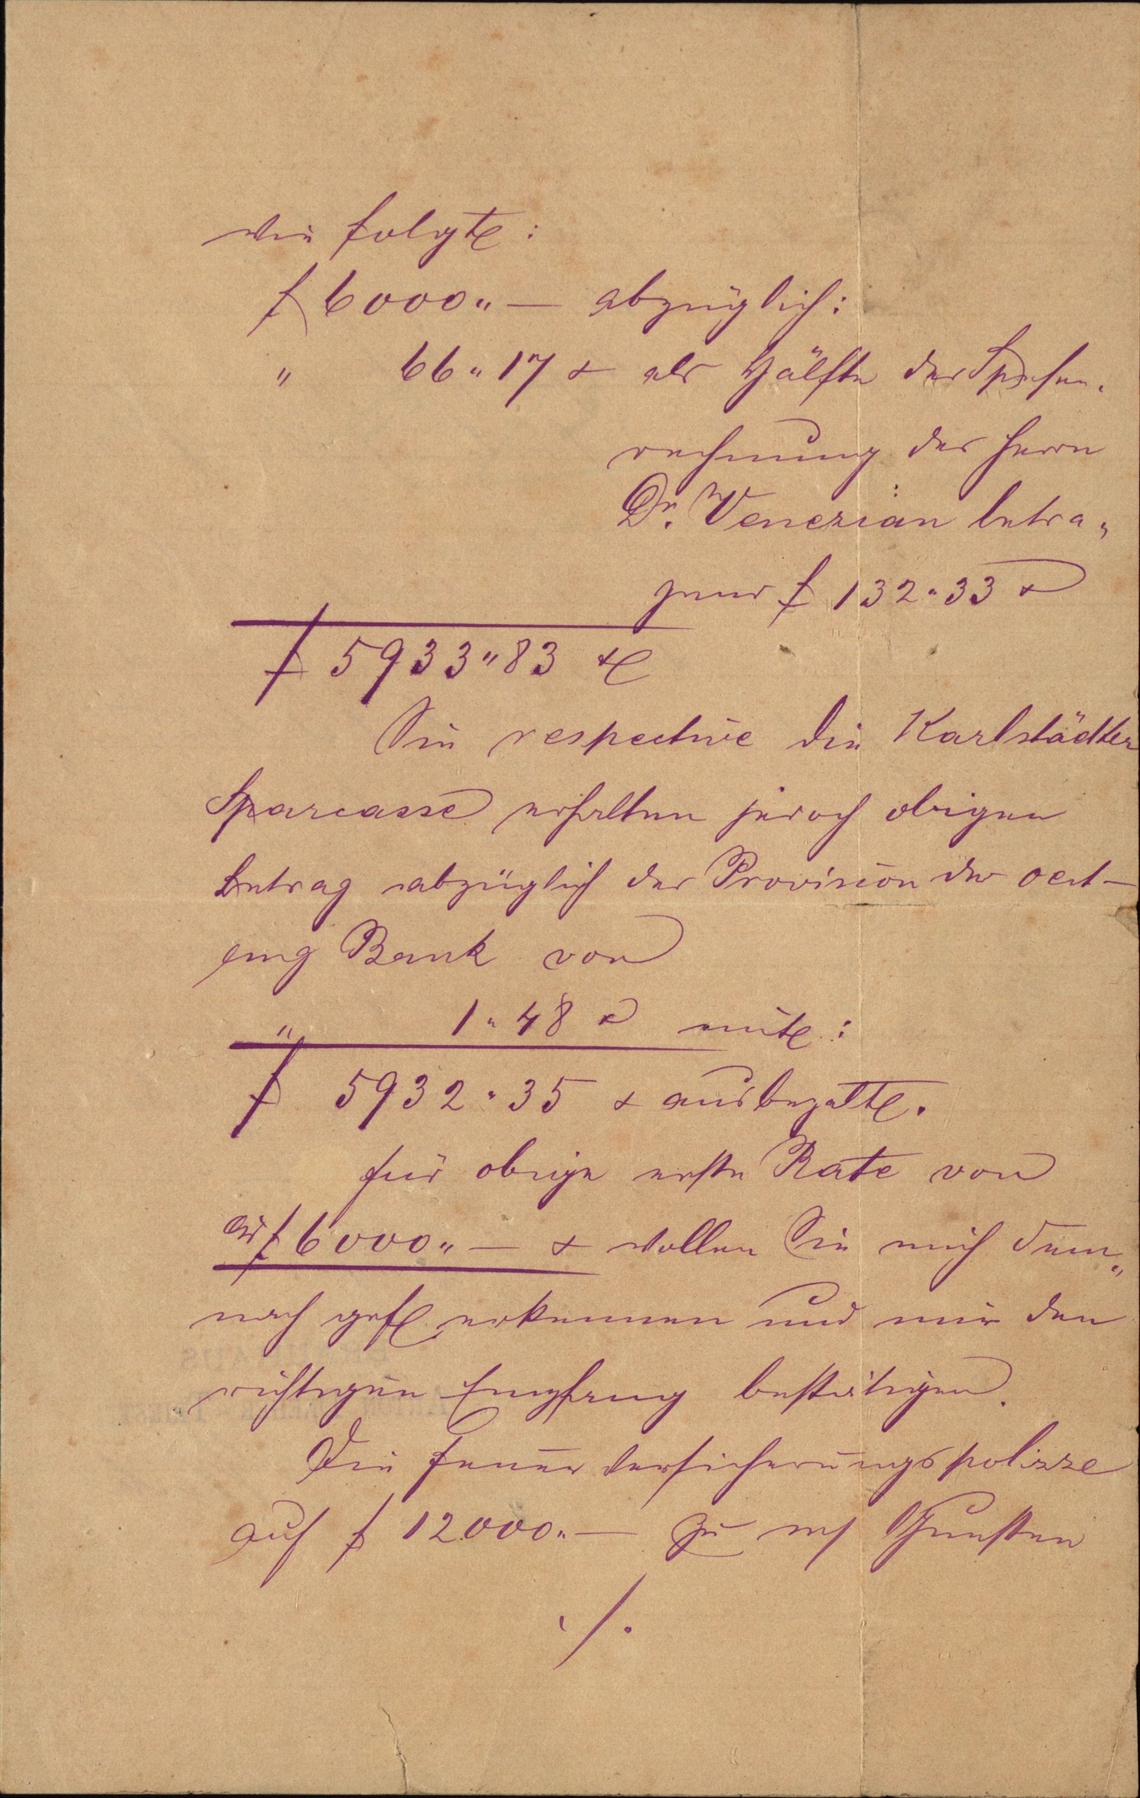 wie folgt:
f 6000.. — abzüglich:
" 66.. 17 x als Hälfte der Spesen-
rechnung des Herrn
Dr. Venezian betra-
gend f 132.. 33 x
f 5933.. 83 x
Sie respective die Karlstädter
Sparcasse erhalten jedoch obigen
Betrag abzüglich der Provision der oest-
ung Bank von
" 1.. 48 x mit:
f 5932.. 35 x ausbezalt.
für obige erste Rate von
f 6000.. — x wollen Sie mich dem-
nach gefl. erkennen und mir den
richtigen Empfang bestätigen.
Die Feuerversicherungspolizze
auf f 12000.. — zu m/ Gunsten
./.